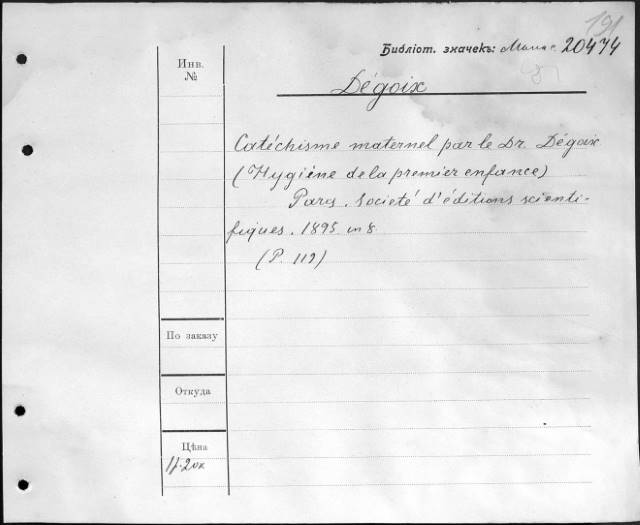 191
Библіот. значекъ: 20474
Инв.
№
Dégoix
Catéchisme maternel par le Dr. Dégoix
(Hygiéne de la premier enfance)
Paris. Societé d'éditions scienti-
fiques. 1895 in 8
(P. 112)
По заказу
Откуда
Цѣна